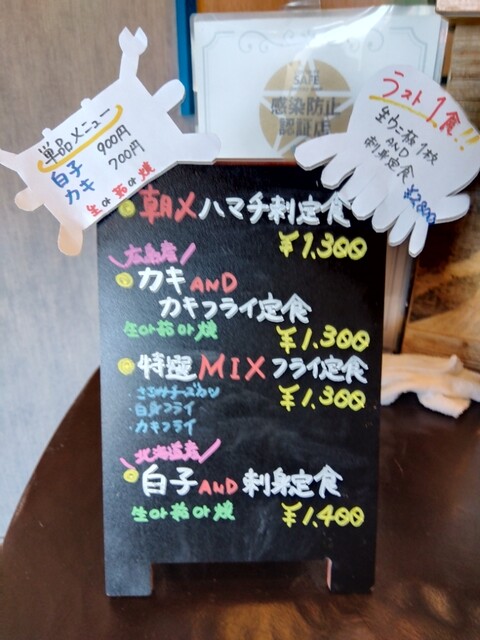 単品メニュー
白子 900円
カキ 700円
生or茹or焼
SAFE
感染防止
認証店
ラスト1食!!
生ウニ箱1枚
AND
刺身定食
¥2,800
朝〆ハマチ刺定食
¥1,300
広島産
カキAND
カキフライ定食
生or茹or焼
¥1,300
特選MIXフライ定食
¥1,300
・ささみチーズカツ
・白身フライ
・カキフライ
北海道産
白子AND刺身定食
生or茹or焼
¥1,400